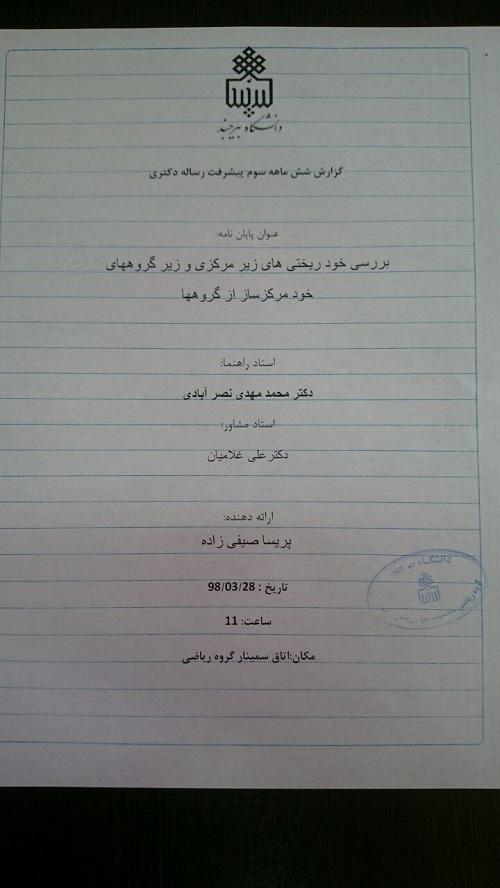 دانشگاه بیرجند
گزارش شش ماهه سوم پیشرفت رساله دکتری
عنوان پایان نامه:
بررسی خود ریختی های زیر مرکزی و زیر گروههای
خود مرکزساز از گروهها
استاد راهنما:
دکتر محمد مهدی نصر آبادی
استاد مشاور:
دکتر علی غلامیان
ارائه دهنده:
پریسا صیفی زاده
تاریخ : 98/03/28
ساعت: 11
مکان:اتاق سمینار گروه ریاضی
دانشگاه بیرجند